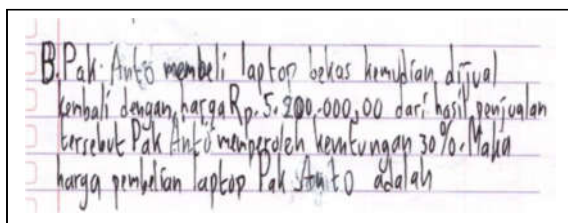 B. Pak Anto membeli laptop bekas kemudian dijual
kembali dengan harga Rp. 5.200.000,00 dari hasil penjualan
tersebut Pak Anto memperoleh keuntungan 30%. Maka
harga pembelian laptop Pak Anto adalah